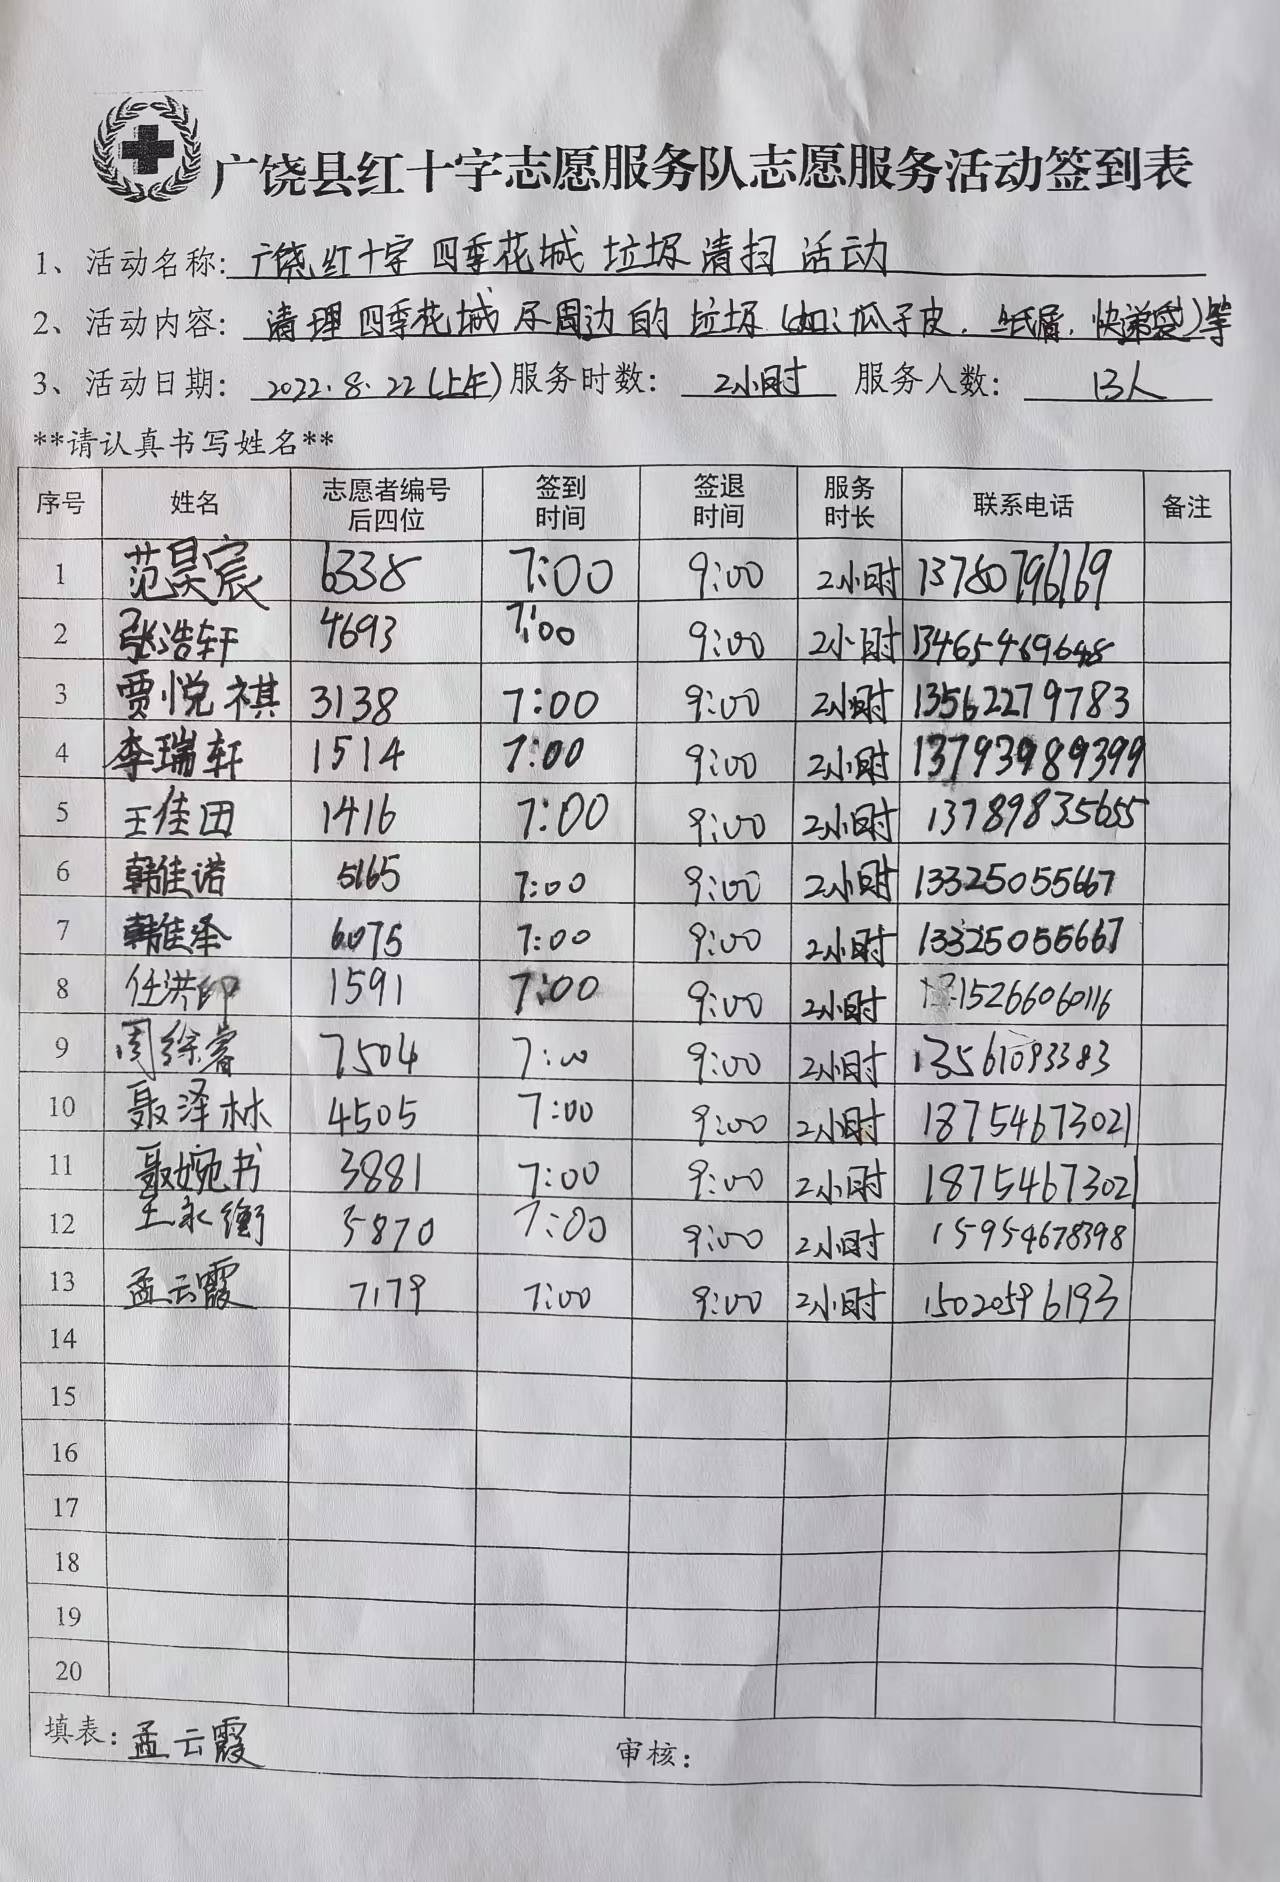 广饶县红十字志愿服务队志愿服务活动签到表
1、活动名称: 广饶红十字 四季花城 垃圾清扫 活动
2、活动内容: 清理四季花城及周边的垃圾(如:瓜子皮、纸屑、快递袋)等
3、活动日期: 2022.8.22(上午) 服务时数: 2小时 服务人数: 13人
**请认真书写姓名**
序号 姓名 志愿者编号后四位 签到时间 签退时间 服务时长 联系电话 备注
1 范昊宸 6338 7:00 9:00 2小时 13780796169
2 张浩轩 4693 7:00 9:00 2小时 13465469648
3 贾悦祺 3138 7:00 9:00 2小时 13562279783
4 李瑞轩 1514 7:00 9:00 2小时 13793989399
5 王佳田 1416 7:00 9:00 2小时 13789835655
6 韩佳诺 5165 7:00 9:00 2小时 13325055667
7 韩佳泽 6075 7:00 9:00 2小时 13325055667
8 任洪印 1591 7:00 9:00 2小时 15266060116
9 周徐睿 7504 7:00 9:00 2小时 13561093383
10 聂泽林 4505 7:00 9:00 2小时 18754673021
11 聂婉书 3881 7:00 9:00 2小时 18754673021
12 王永衡 5870 7:00 9:00 2小时 15954678398
13 孟云霞 7179 7:00 9:00 2小时 15020596193
14
15
16
17
18
19
20
填表: 孟云霞 审核: